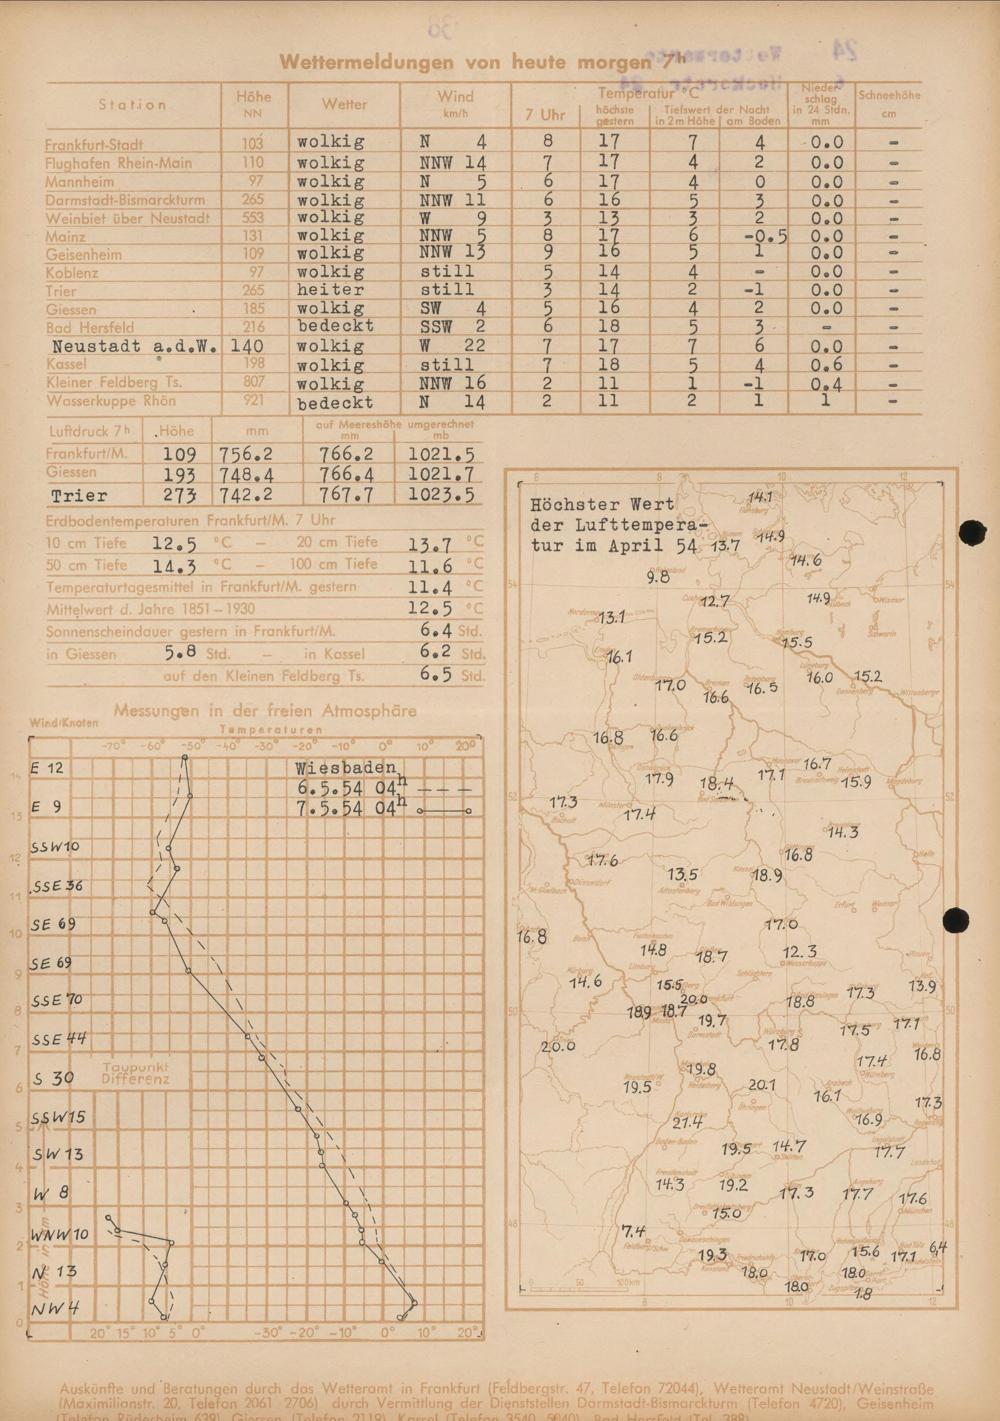 Wettermeldungen von heute morgen 7h
Station Höhe NN Wetter Wind km/h Temperatur °C 7 Uhr höchste gestern Tiefswert der Nacht in 2 m Höhe am Boden Nieder schlag in 24 Stdn. mm Schneehöhe cm
Frankfurt-Stadt 103 wolkig N 4 8 17 7 4 0.0 -
Flughafen Rhein-Main 110 wolkig NNW 14 7 17 4 2 0.0 -
Mannheim 97 wolkig N 5 6 17 4 0 0.0 -
Darmstadt-Bismarckturm 265 wolkig NNW 11 6 16 5 3 0.0 -
Weinbiet über Neustadt 553 wolkig W 9 3 13 3 2 0.0 -
Mainz 131 wolkig NNW 5 8 17 6 -0.5 0.0 -
Geisenheim 109 wolkig NNW 13 9 16 5 1 0.0 -
Koblenz 97 wolkig still 5 14 4 - 0.0 -
Trier 265 heiter still 3 14 2 -1 0.0 -
Giessen 185 wolkig SW 4 5 16 4 2 0.0 -
Bad Hersfeld 216 bedeckt SSW 2 6 18 5 3 - -
Neustadt a.d.W. 140 wolkig W 22 7 17 7 6 0.0 -
Kassel 198 wolkig still 7 18 5 4 0.6 -
Kleiner Feldberg Ts. 807 wolkig NNW 16 2 11 1 -1 0.4 -
Wasserkuppe Rhön 921 bedeckt N 14 2 11 2 1 1 -
Luftdruck 7h Höhe mm auf Meereshöhe umgerechnet mm mb
Frankfurt/M. 109 756.2 766.2 1021.5
Giessen 193 748.4 766.4 1021.7
Trier 273 742.2 767.7 1023.5
Erdbodentemperaturen Frankfurt/M. 7 Uhr
10 cm Tiefe 12.5 °C – 20 cm Tiefe 13.7 °C
50 cm Tiefe 14.3 °C – 100 cm Tiefe 11.6 °C
Temperaturtagesmittel in Frankfurt/M. gestern 11.4 °C
Mittelwert d. Jahre 1851–1930 12.5 °C
Sonnenscheindauer gestern in Frankfurt/M. 6.4 Std.
in Giessen 5.8 Std. – in Kassel 6.2 Std.
auf den Kleinen Feldberg Ts. 6.5 Std.
Messungen in der freien Atmosphäre
Wind/Knoten Temperaturen
-70° -60° -50° -40° -30° -20° -10° 0° 10° 20°
Wiesbaden
6.5.54 04h
7.5.54 04h
E 12
E 9
SSW 10
SSE 36
SE 69
SE 69
SSE 70
SSE 44
S 30
Taupunkt
Differenz
SSW 15
SW 13
W 8
WNW 10
N 13
NW 4
14
13
12
11
10
9
8
7
6
5
4
3
2
1
0
Höhe in km
20° 15° 10° 5° 0° -30° -20° -10° 0° 10° 20°
6 8 10 12
Höchster Wert
der Lufttempera-
tur im April 54
14.1
13.7 14.9
14.6
9.8
12.7 14.9
13.1
15.2 15.5
16.1
17.0 16.6 16.5 16.0 15.2
16.8 16.6
17.9 18.4 17.1 16.7 15.9
17.3 17.4
14.3
17.6 16.8
13.5 18.9
17.0
16.8 14.8 18.7 12.3
14.6 15.5 13.9
20.0 18.8 17.3
18.9 18.7 19.7 17.5 17.1
20.0 17.8 16.8
19.8 17.4
19.5 20.1 16.1 17.3
21.4 16.9
19.5 14.7 17.7
14.3 19.2 17.3 17.7 17.6
15.0
7.4
19.3 17.0 15.6 17.1 6.4
18.0 18.0
18.0 1.8
54
52
50
48
0 50 100 km
8 10 12
Auskünfte und Beratungen durch das Wetteramt in Frankfurt (Feldbergstr. 47, Telefon 72044), Wetteramt Neustadt/Weinstraße
(Maximilianstr. 20, Telefon 2061 2706) durch Vermittlung der Dienststellen Darmstadt-Bismarckturm (Telefon 4720), Geisenheim
(Telefon Rüdesheim 639), Giessen (Telefon 2118), Kassel (Telefon 3540, 5040), Bad Hersfeld (Tel. 388)